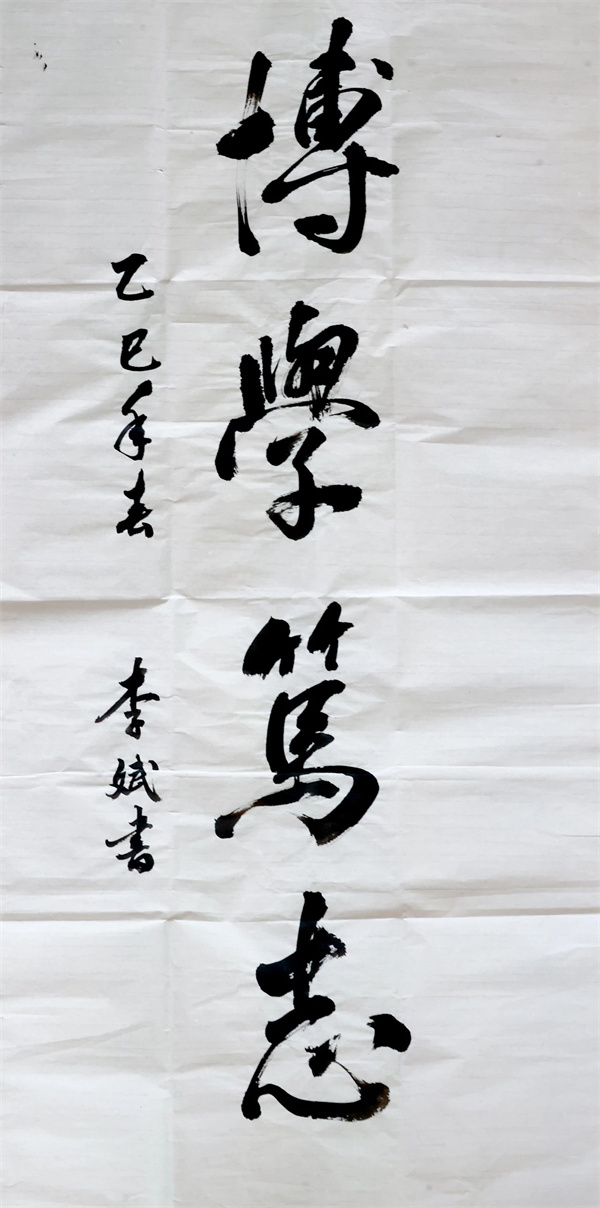 博學篤志
乙巳年春
李斌書